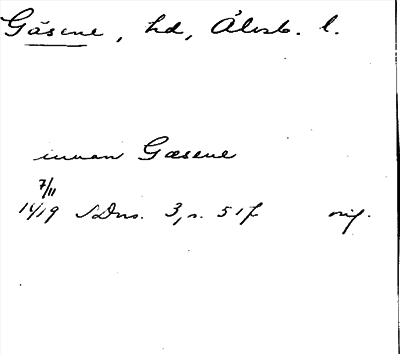 Gäsene, hd, Älvsb. l.
innan Gæsene
7/11
1419 SDns. 3, s. 51f orig.